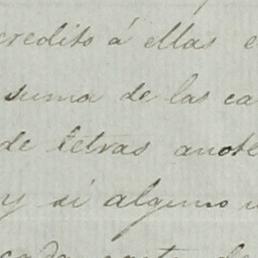 credito á ellas
suma de las ca
de letras anote
y si alguno